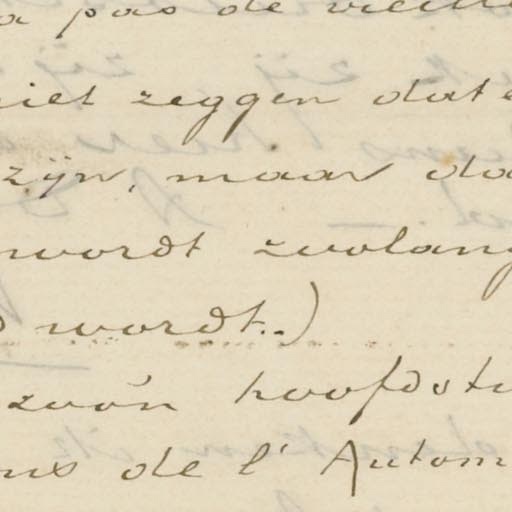 a pas de vieill
niet zeggen dat e
zijn, maar da
wordt zoolang
wordt..)
zoo'n hoofdstu
ns de l'Autom